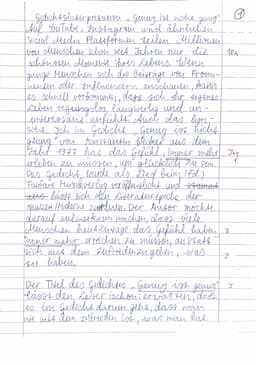 Gedichtsinterpretation „Genug ist nicht genug"
Auf YouTube, Instagram und ähnlichen
Social Media Plattformen teilen Millionen
von Menschen schon seit Jahren nur die
schönsten Momente ihres Lebens. Wenn
junge Menschen sich die Beiträge von Promi-
nenten oder Influencern anschauen, kann
es schnell vorkommen, dass sich ihr eigenes
Leben langweilig und un-
interessant anfühlt. Auch das lyri-
sche Ich im Gedicht „Genug ist nicht
genug" von Konstantin Wecker aus dem
Jahr 1977 hat das Gefühl, immer mehr
erleben zu müssen, um glücklich zu sein.
Das Gedicht, wurde als Lied beim (Ed.)
Musikverlag veröffentlicht und
lässt sich der Literaturepoche der
zuordnen. Der Autor möchte
darauf aufmerksam machen, dass viele
Menschen heutzutage das Gefühl haben
immer mehr erreichen zu müssen, anstatt
sich mit dem zufriedenzugeben, was
sie haben.
Der Titel des Gedichtes „Genug ist nicht genug"
lässt den Leser schon erwarten, dass
es im Gedicht darum geht, dass man
nie mit dem zufrieden ist, was man hat.